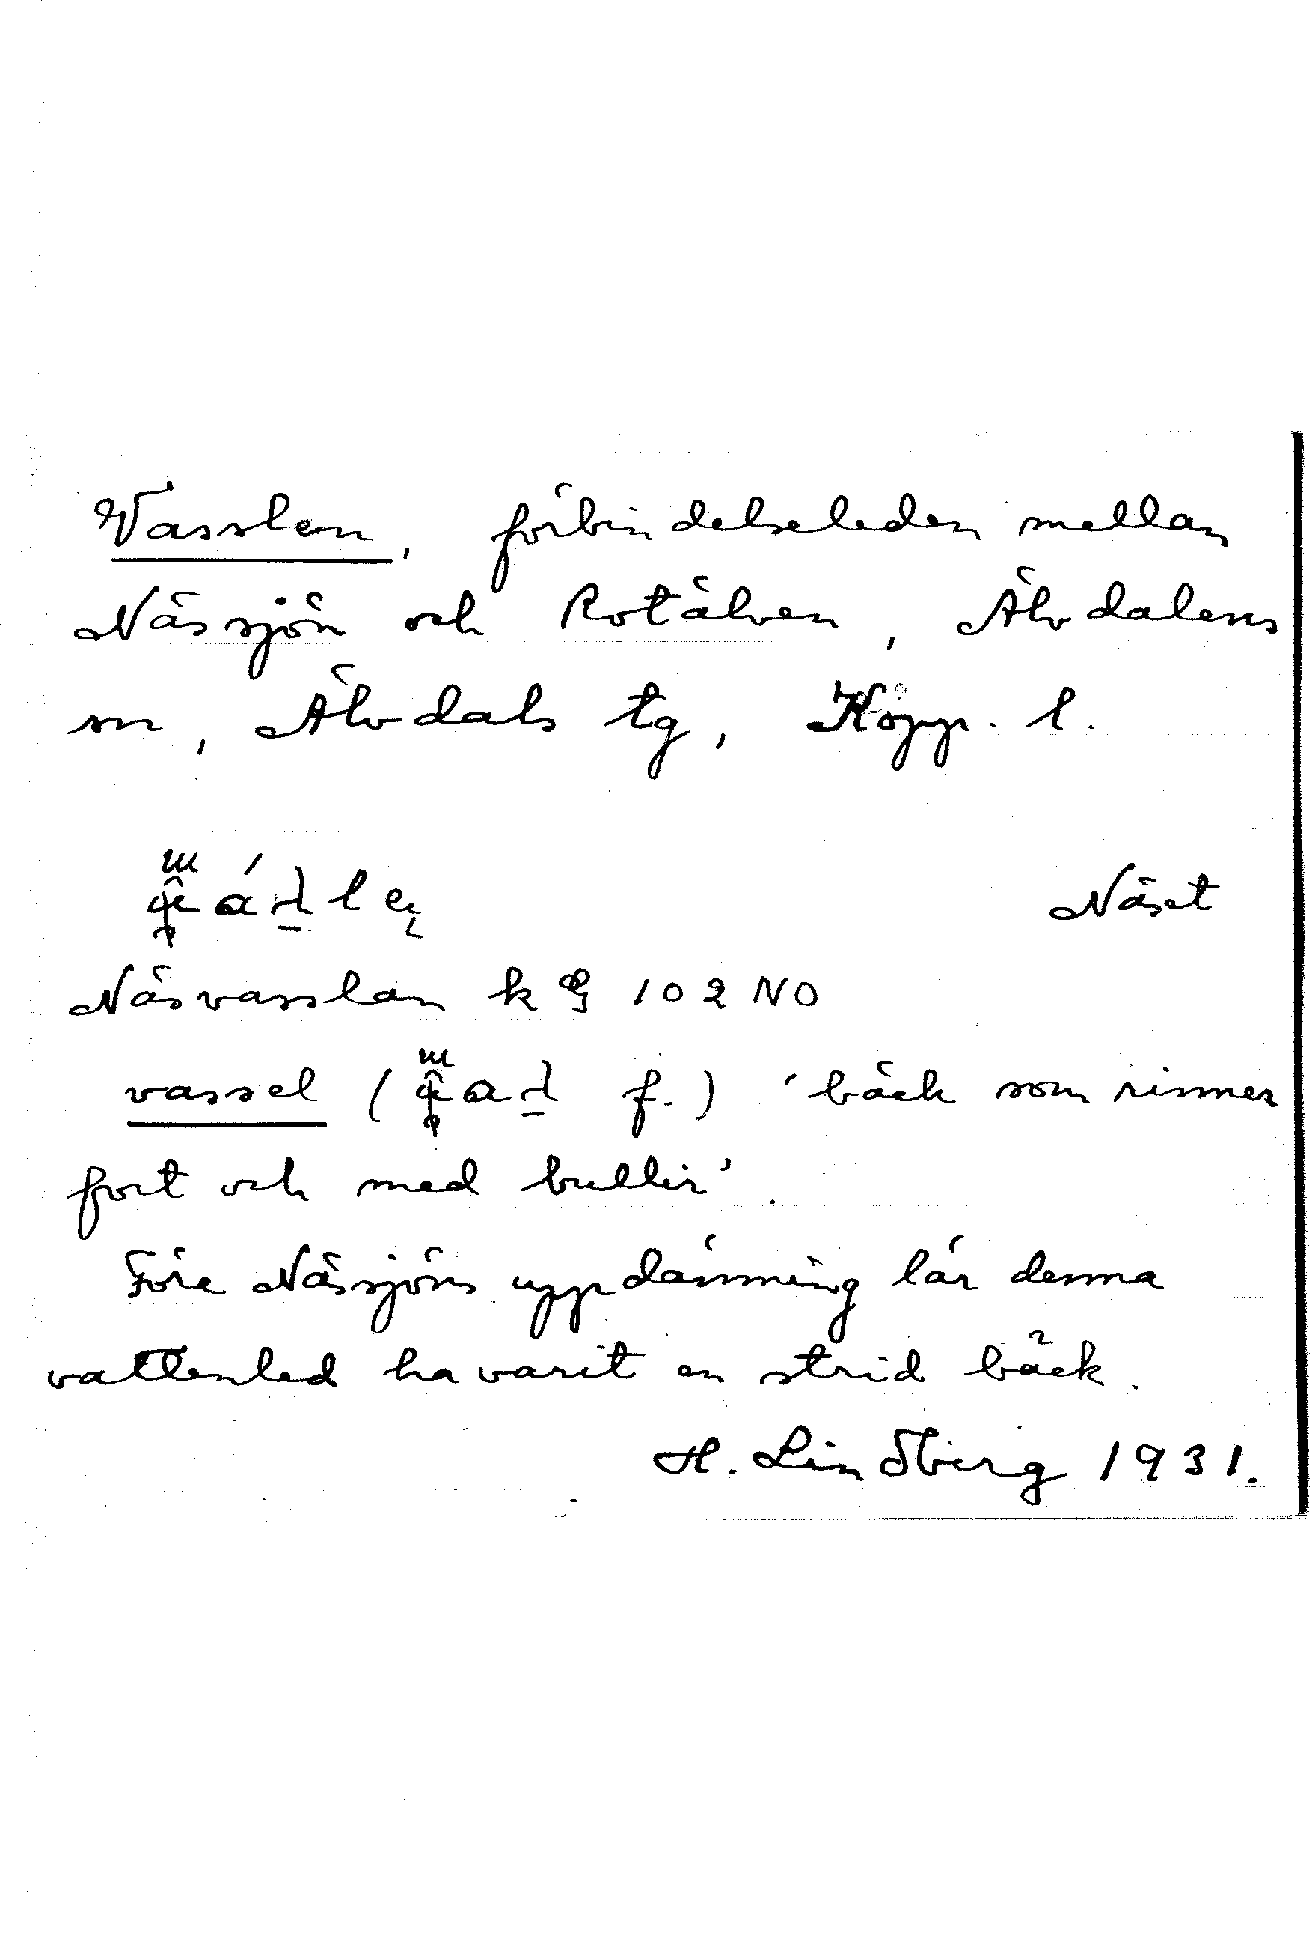 Vasslen, förbindelseleden mellan
Nässjön och Rotälven, Älvdalens
sn, Älvdals tg, Kopp. l.
Näset
Näsvasslan k 102 NO
vassel ( f.) 'bäck som rinner
fort och med buller'.
Före Näsjöns uppdämning lär denna
vattenled ha varit en strid bäck.
H. Lindberg 1931.